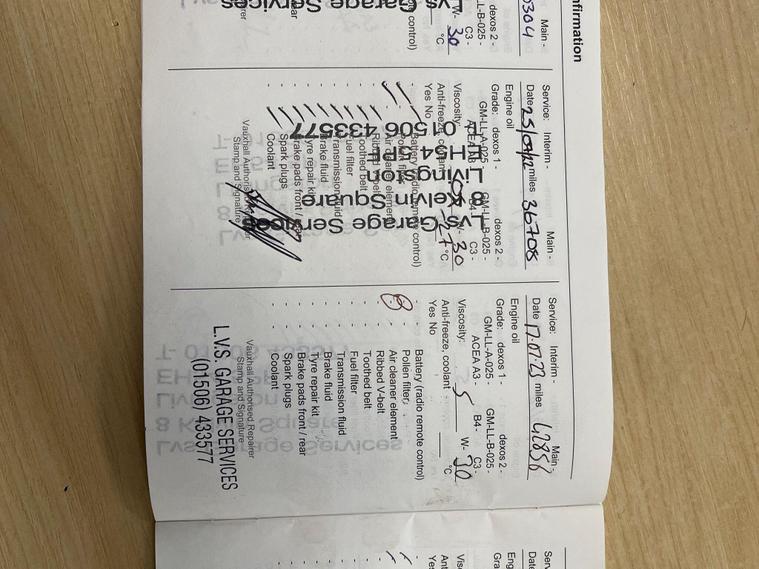 nfirmation
Main -
0304
dexos 2 -
LL-B-025 -
C3 -
W- 30
°C
control)
Garage Services
Service: Interim - Main -
Date 25/07/22 miles 36708
Engine oil
Grade: dexos 1 - dexos 2 -
GM-LL-A-025 - GM-LL-B-025 -
ACEA A3 B4 - C3 -
Viscosity: W- 30
Anti-freeze, coolant -27 °C
Yes No
Battery (radio remote control)
Pollen filter
Air cleaner element
Ribbed V-belt
Toothed belt
Fuel filter
Transmission fluid
Brake fluid
Tyre repair kit
Brake pads front / rear
Spark plugs
Coolant
Vauxhall Authorised Repairer
Stamp and Signature
Lvs Garage Services
8 Kelvin Square
Livingston
EH54 5PF
T- 01506 433577
Service: Interim - Main -
Date 17.07.23 miles 42858
Engine oil
Grade: dexos 1 - dexos 2 -
GM-LL-A-025 - GM-LL-B-025 -
ACEA A3 B4 - C3 -
Viscosity: 5 W- 30
Anti-freeze, coolant °C
Yes No
Battery (radio remote control)
Pollen filter
Air cleaner element
Ribbed V-belt
Toothed belt
Fuel filter
Transmission fluid
Brake fluid
Tyre repair kit
Brake pads front / rear
Spark plugs
Coolant
Vauxhall Authorised Repairer
Stamp and Signature
L.V.S. GARAGE SERVICES
(01506) 433577
Service:
Date
Engine
Gra
Visc
Anti
Yes